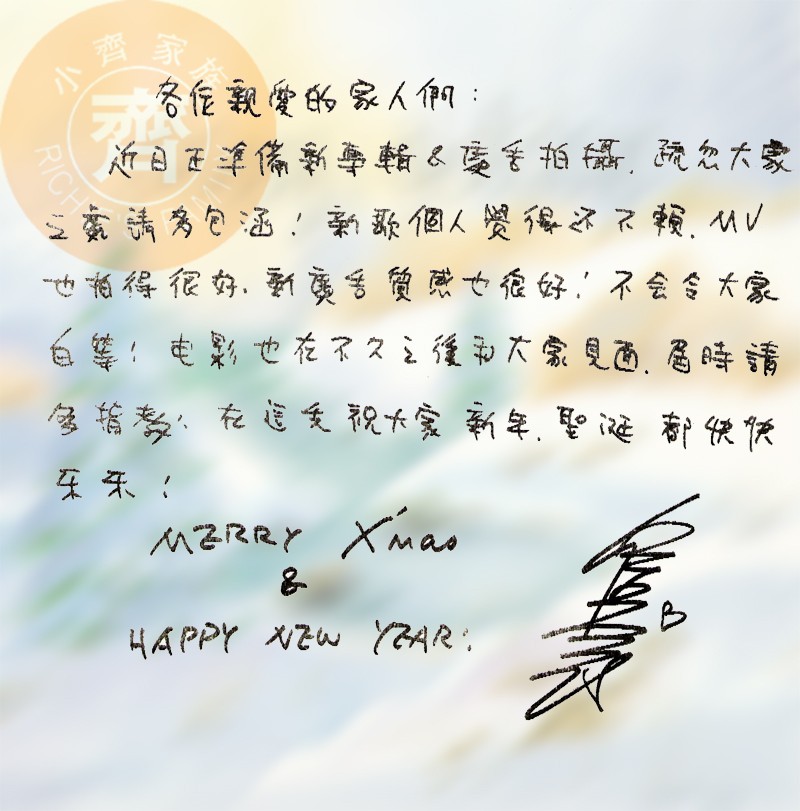 小齊家族
齊
RICHIE'S FAMILY
各位親愛的家人們：
近日正準備新專輯&廣告拍攝.疏忽大家
之處請多包涵！新歌個人覺得还不賴.MV
也拍得很好.新廣告質感也很好！不会令大家
白等！电影也在不久之後和大家見面.屆時請
多指教！在這兒祝大家新年.聖誕都快快
乐乐！
MERRY X'mas
&
HAPPY NEW YEAR！
B